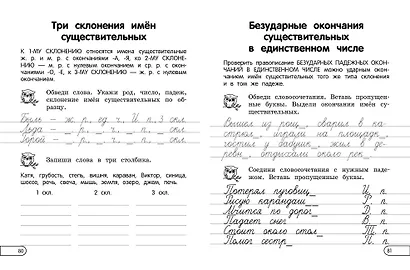 Три склонения имён
существительных
К 1-МУ СКЛОНЕНИЮ относятся имена существительные
ж. р. и м. р. с окончаниями -А, -Я, ко 2-МУ СКЛОНЕ-
НИЮ — м. р. с нулевым окончанием и ср. р. с окон-
чаниями -О, -Е, к 3-МУ СКЛОНЕНИЮ — ж. р. с нулевым
окончанием.
Обведи слова. Укажи род, число, падеж,
склонение имён существительных по об-
разцу.
Боль – ж. р., ед. ч., И. п., 3 скл.
Льда – р., ч., п., скл.
Горой – р., ч., п., скл.
Запиши слова в три столбика.
Катя, грубость, степь, вишня, караван, Виктор, синица,
шоссе, речь, свеча, мышь, земля, озеро, джем, печь.
1 скл. 2 скл. 3 скл.
80
Безударные окончания
существительных
в единственном числе
Проверить правописание БЕЗУДАРНЫХ ПАДЕЖНЫХ ОКОН-
ЧАНИЙ В ЕДИНСТВЕННОМ ЧИСЛЕ можно ударным окон-
чанием имён существительных того же типа склонения
и в том же падеже.
Обведи словосочетания. Вставь пропу-
щенные буквы. Выдели окончания имён су-
ществительных.
Вышел из рощ_, сварил в ка-
стрюл_, играли на площадк_,
говорил у бабушк_, жил в де-
ревн_, отдыхали около рек_
Соедини словосочетания с нужным паде-
жом. Вставь пропущенные буквы.
Потерял пуговиц_ И. п.
Рисую карандаш_ Р. п.
Мчится по дорог_ Д. п.
Падает снег_ В. п.
Стоит около стол_ Т. п.
Помог сестр_ П. п.
81